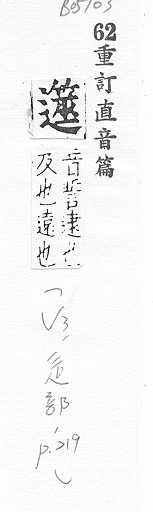 B05103
62重訂直音篇
遾
音誓逮也
及也遠也
(V3,辵部,p.219)